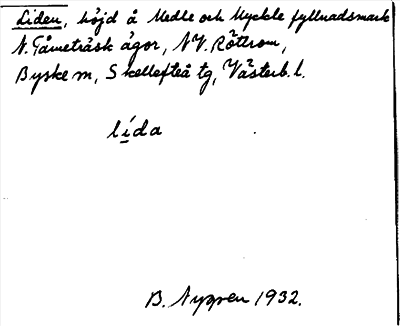 Liden, höjd å Medle och Myckle fyllnadsmark
N. Tåmeträsk ägor, NV. Röttrom,
Byske m, Skellefteå tg, Västerb. l.
lída
B. Nyppen 1932.